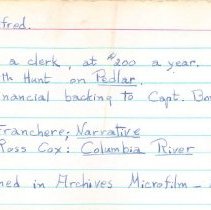 fred.
a clerk, at $200 a year.
th Hunt on Pedlar.
nancial backing to Capt. Bo
Franchere; Narrative
Ross Cox: Columbia River
ned in Archives Microfilm -